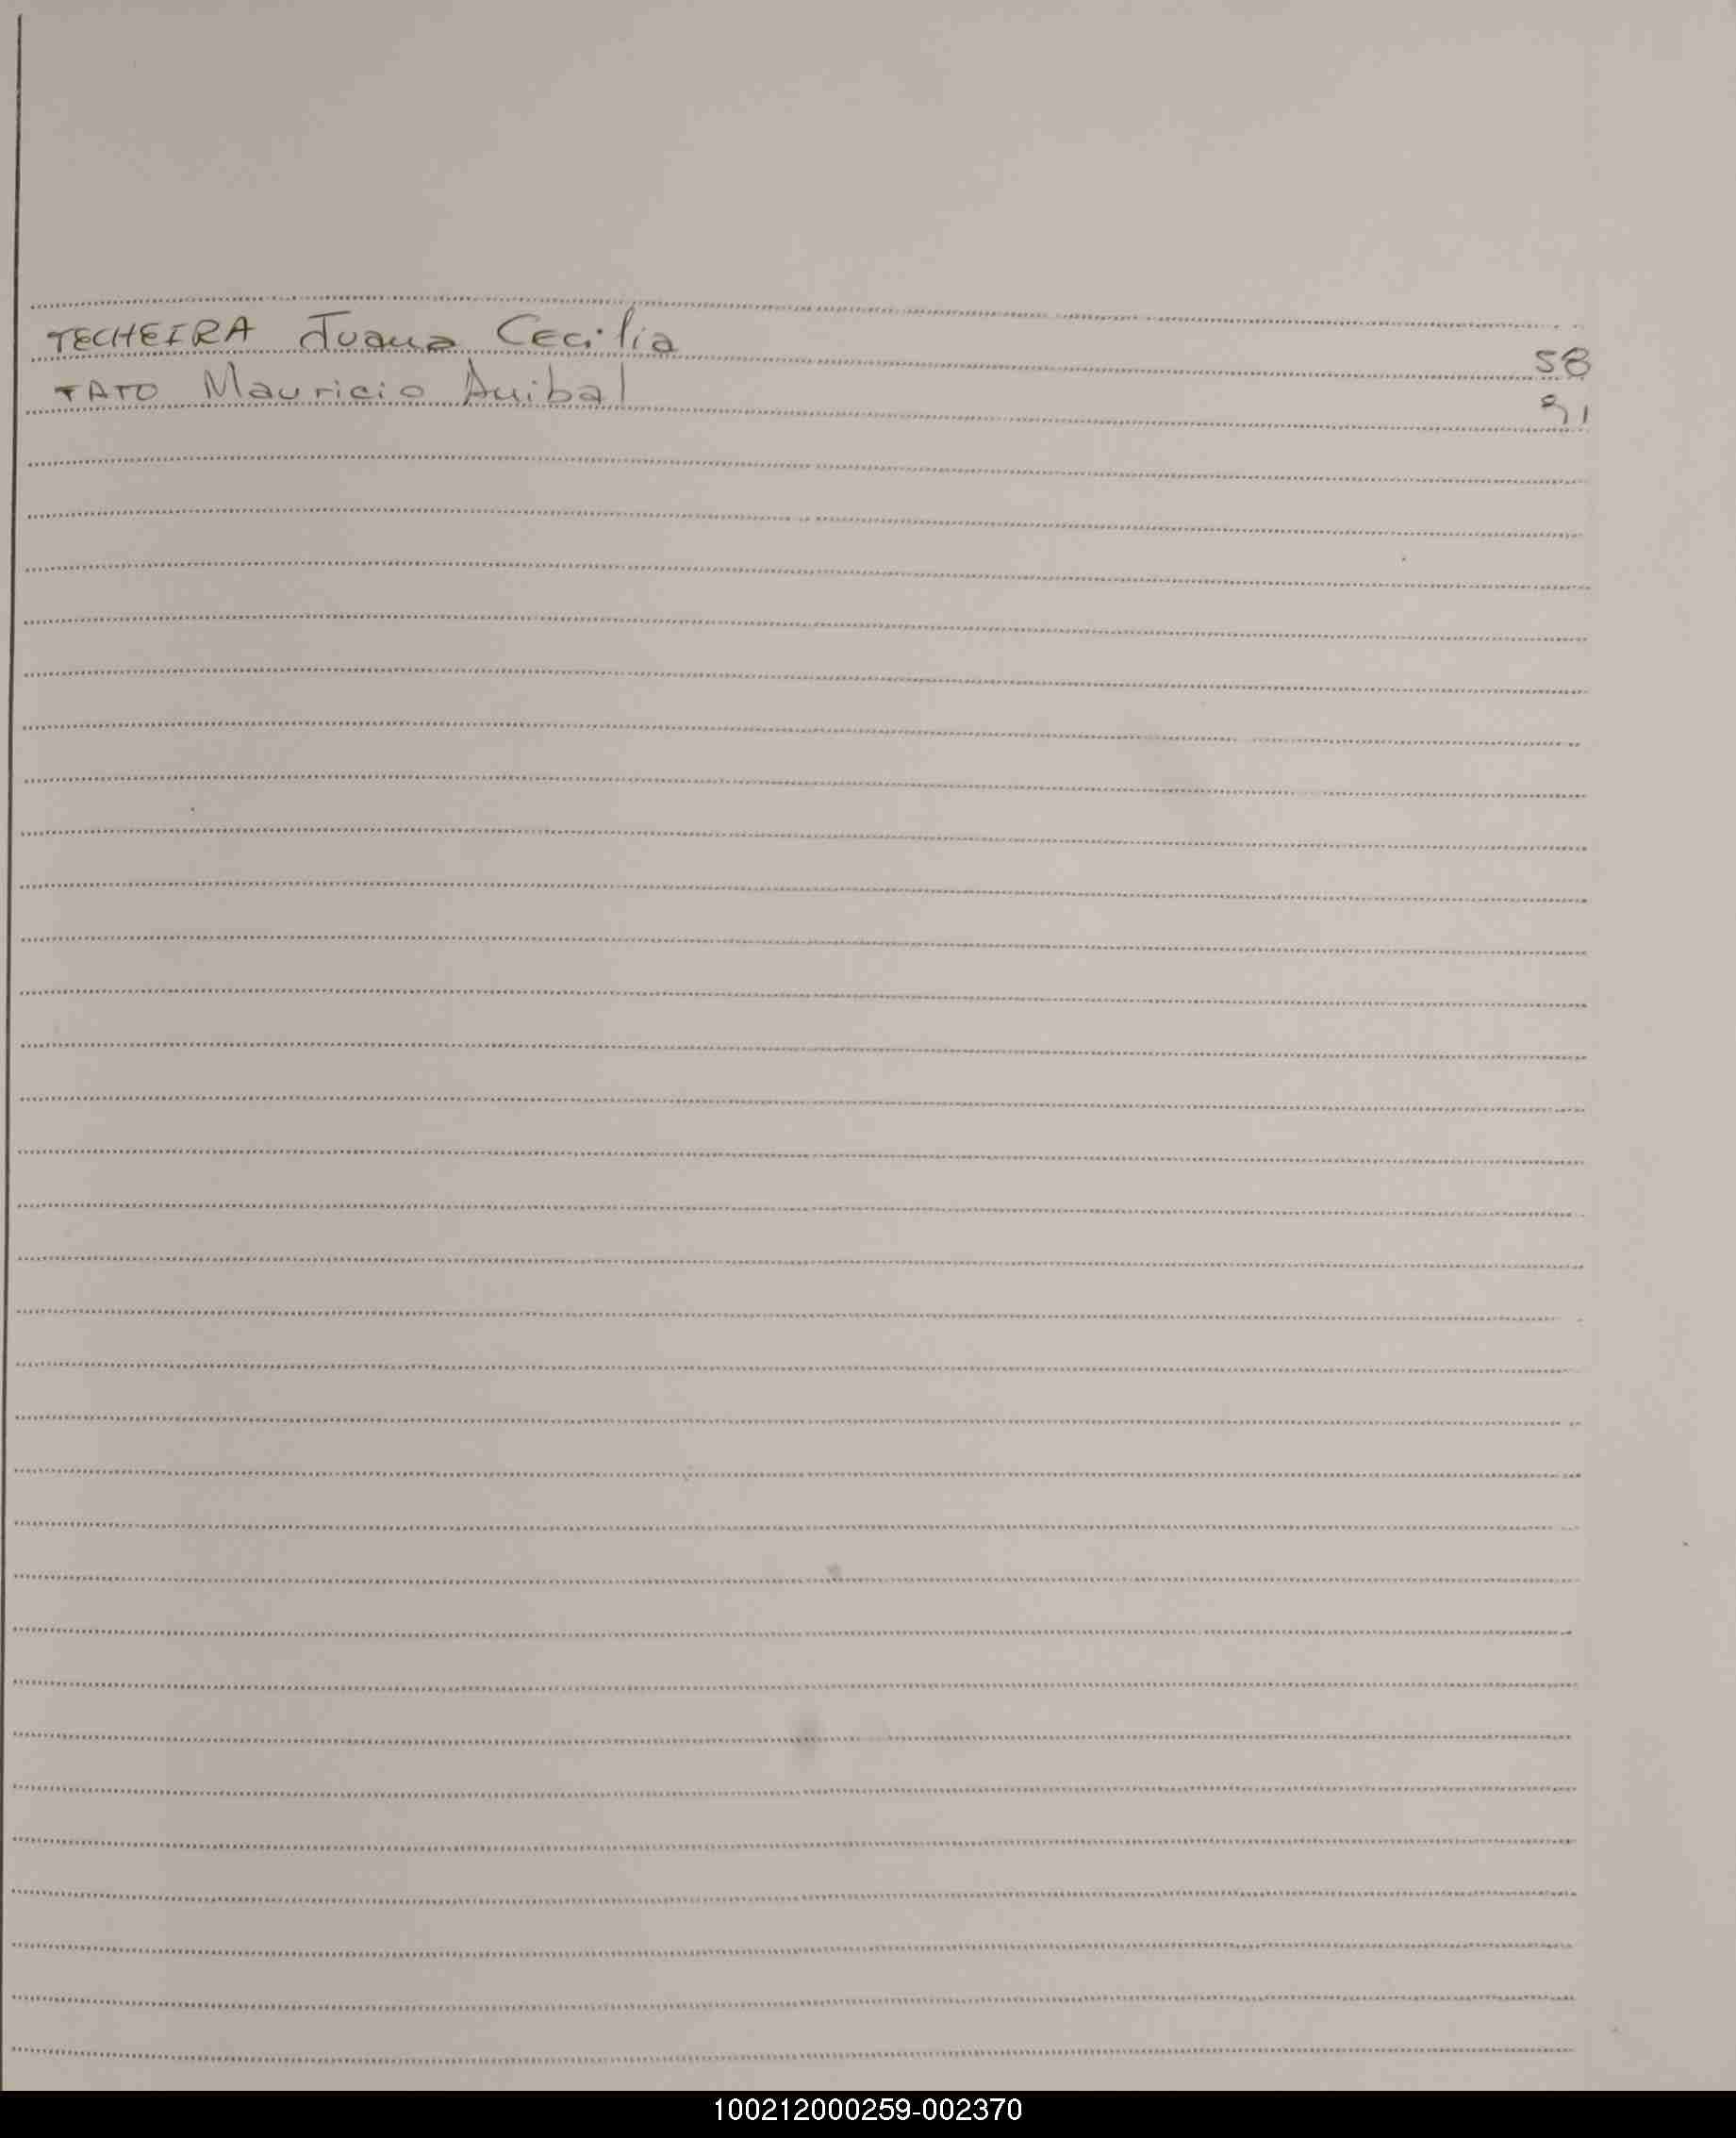 TECHEIRA Juana Cecilia 58
TATO Mauricio Anibal 91
100212000259-002370